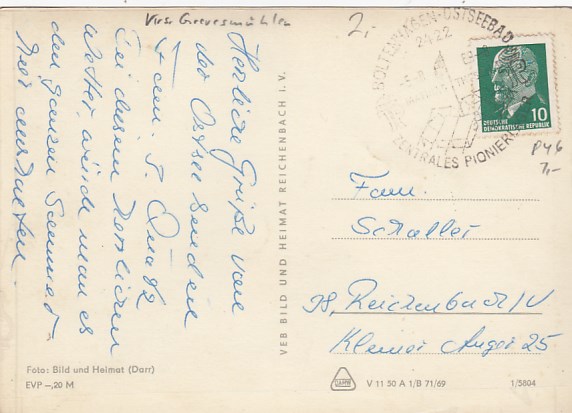 Krs. Grevesmühlen
2,-
Herzliche Grüße von
der Ostsee senden
Fam.
Bei diesem herrlichen
Wetter würde man es
den ganzen Sommer
hier aushalten.
BOLTENHAGEN-OSTSEEBAD
2422
ZENTRALES PIONIER
10
DEUTSCHE
DEMOKRATISCHE REPUBLIK
P46
7,-
Fam.
Schaller
98, Reichenbach/V
Kleiner Anger 25
VEB BILD UND HEIMAT REICHENBACH I. V.
Foto: Bild und Heimat (Darr)
EVP –,20 M
V 11 50 A 1/B 71/69
1/5804